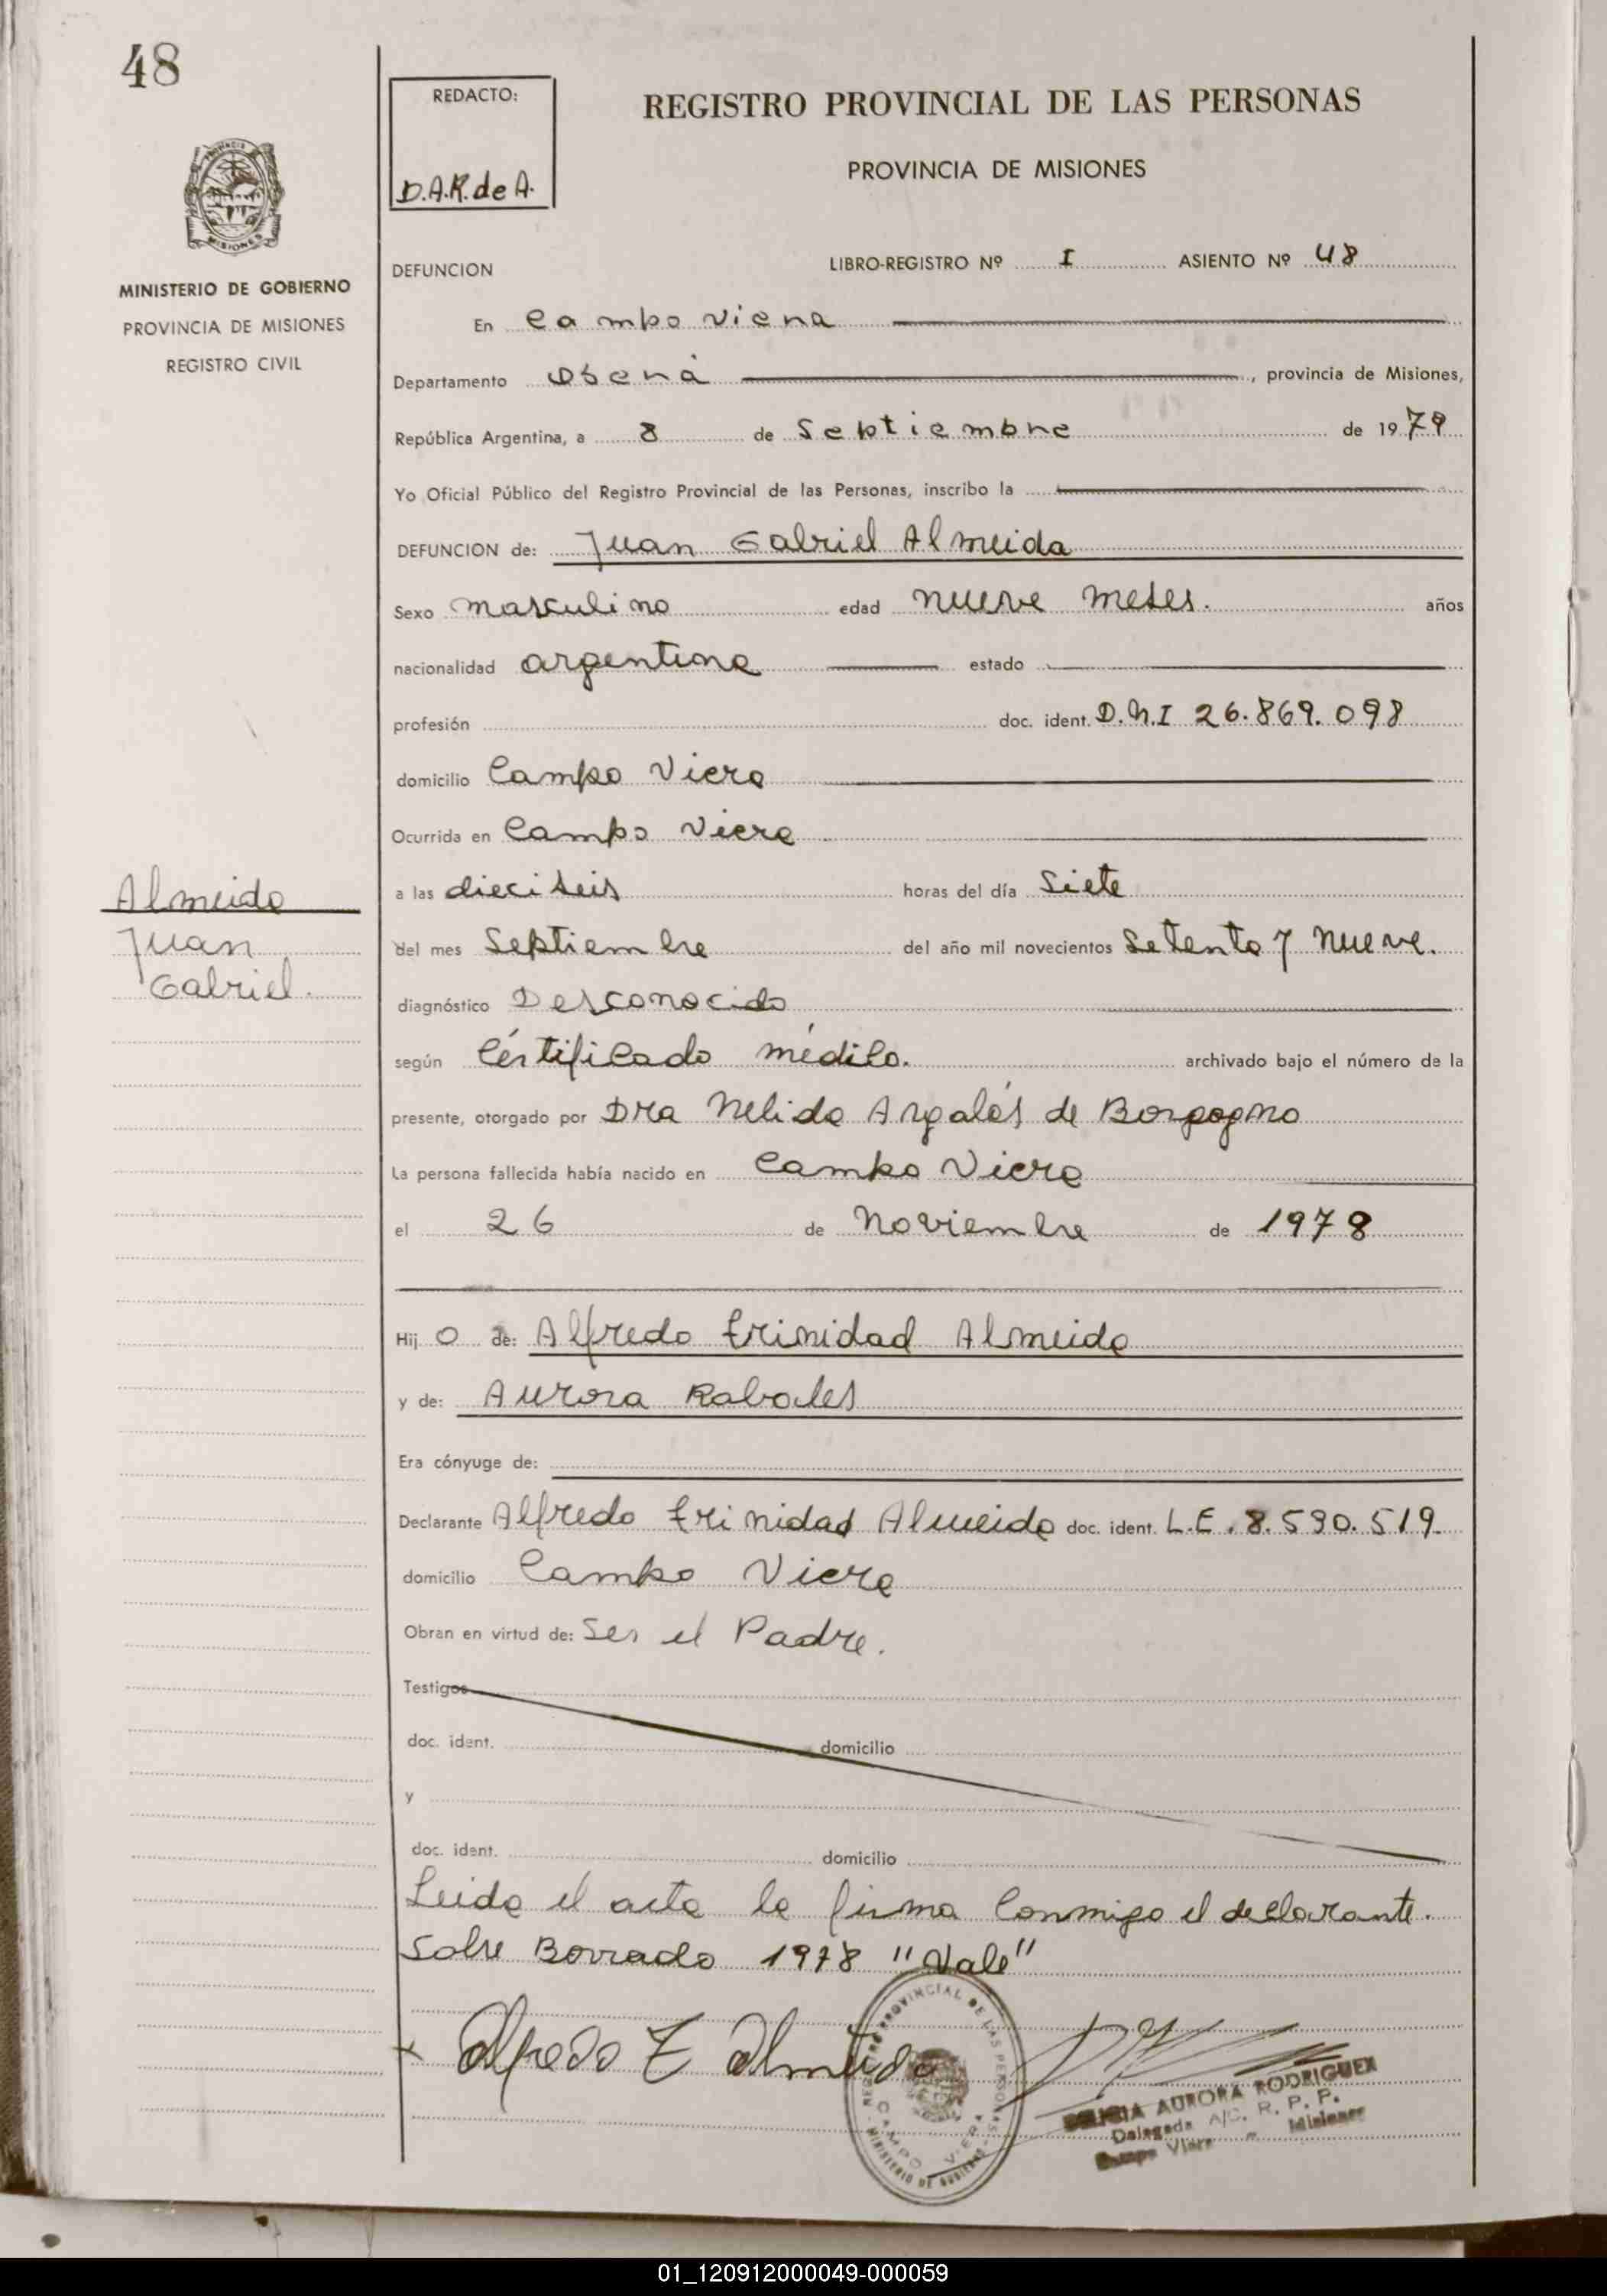 48
REDACTO:
D.A.R. de A.
REGISTRO PROVINCIAL DE LAS PERSONAS
PROVINCIA DE MISIONES
MINISTERIO DE GOBIERNO
PROVINCIA DE MISIONES
REGISTRO CIVIL
DEFUNCION LIBRO-REGISTRO Nº I ASIENTO Nº 48
En Campo Viera
Departamento Oberá, provincia de Misiones,
República Argentina, a 8 de Septiembre de 1979
Yo Oficial Público del Registro Provincial de las Personas, inscribo la
DEFUNCION de: Juan Gabriel Almeida
Sexo masculino edad nueve meses. años
nacionalidad argentina estado
profesión doc. ident. D.N.I 26.869.098
domicilio Campo Viera
Ocurrida en Campo Viera
a las dieciseis horas del día Siete
del mes Septiembre del año mil novecientos Setenta y nueve.
diagnóstico Desconocido
según Cértificado médico. archivado bajo el número de la
presente, otorgado por Dra Nelida de
La persona fallecida había nacido en Campo Viera
el 26 de Noviembre de 1978
Hij o de: Alfredo trinidad Almeida
y de: Aurora
Era cónyuge de:
Declarante Alfredo trinidad Almeida doc. ident. L.E. 8.590.519.
domicilio Campo Viera
Obran en virtud de: Ser el Padre.
Testigos
doc. ident. domicilio
y
doc. ident. domicilio
Leida el acta la firma Conmigo el declarante.
Sobre Borrado 1978 "Vale"
Alfredo T Almeida
REGISTRO PROVINCIAL DE LAS PERSONAS
CAMPO VIERA
MINISTERIO DE GOBIERNO
AURORA RODRIGUEZ
Delegada A/C. R. P. P.
Campo Viera - Misiones
Almeida
Juan
Gabriel.
01_120912000049-000059